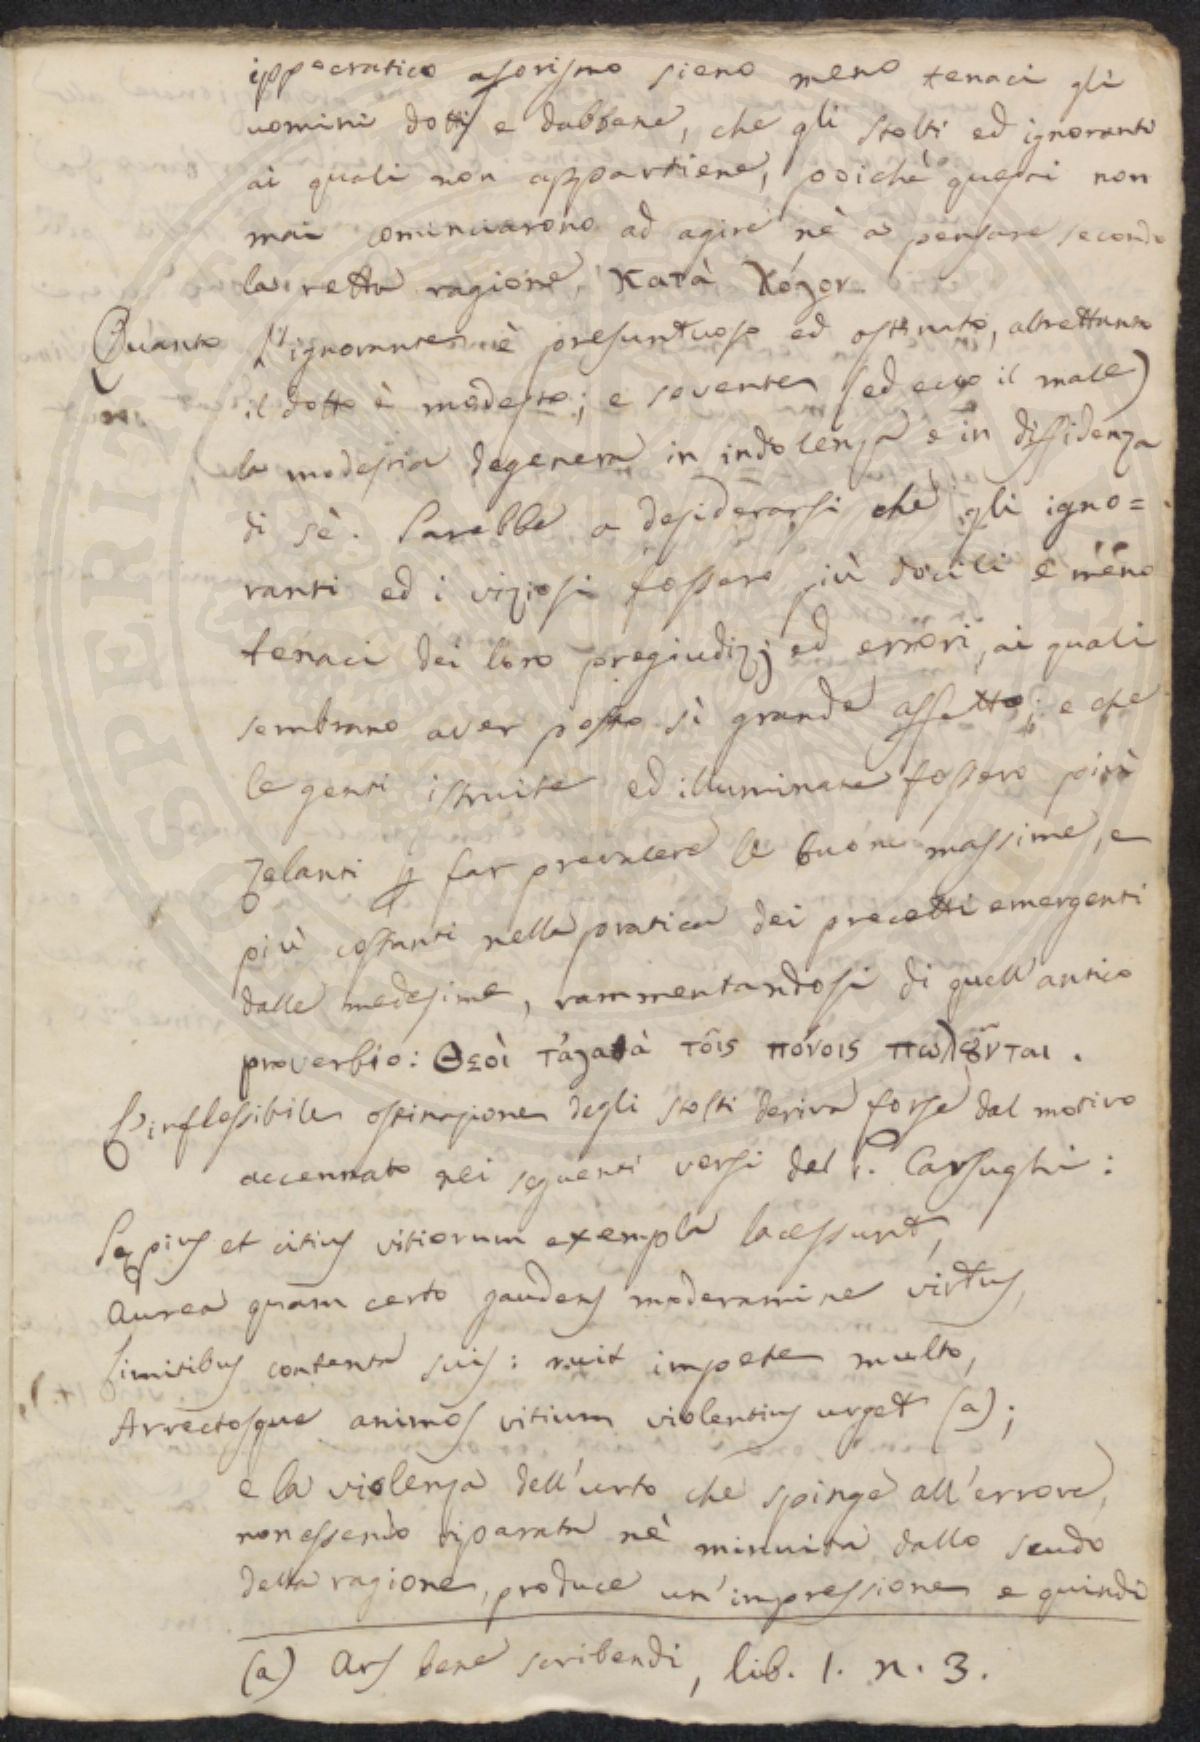 ippocratico aforismo sieno meno tenaci gli
uomini dotti e dabbene, che gli stolti ed ignoranti
ai quali non appartiene, poichè questi non
mai cominciarono ad agire nè a pensare secondo
la retta ragione, κατὰ λόγον.
Quanto l'ignorante è presuntuoso ed ostinato, altrettanto
il dotto è modesto; e sovente (ed ecco il male)
la modestia degenera in indolenza e in diffidenza
di sè. Sarebbe a desiderarsi che gli igno=
ranti ed i viziosi fossero più docili e meno
tenaci dei loro pregiudizj ed errori, ai quali
sembrano aver posto sì grande affetto; e che
le genti istruite ed illuminate fossero più
zelanti ꝑ far prevalere le buone massime, e
più costanti nella pratica dei precetti emergenti
dalle medesime, rammentandosi di quell'antico
proverbio: Θεοὶ τἀγαθὰ τοῖς πόνοις πωλοῦνται.
L'inflessibile ostinazione degli stolti deriva forse dal motivo
accennato nei seguenti versi del P. Carsughi:
Sæpius et citius vitiorum exempla lacessunt,
Aurea quam certo gaudens moderamine virtus,
Limitibus contenta suis: ruit impete multo,
Arrectosque animos vitium violentius urget (a);
e la violenza dell'urto che spinge all'errore,
non essendo riparata nè minuita dallo scudo
della ragione, produce un'impressione e quindi
(a) Ars bene scribendi, lib. 1. n. 3.
SPERITAS